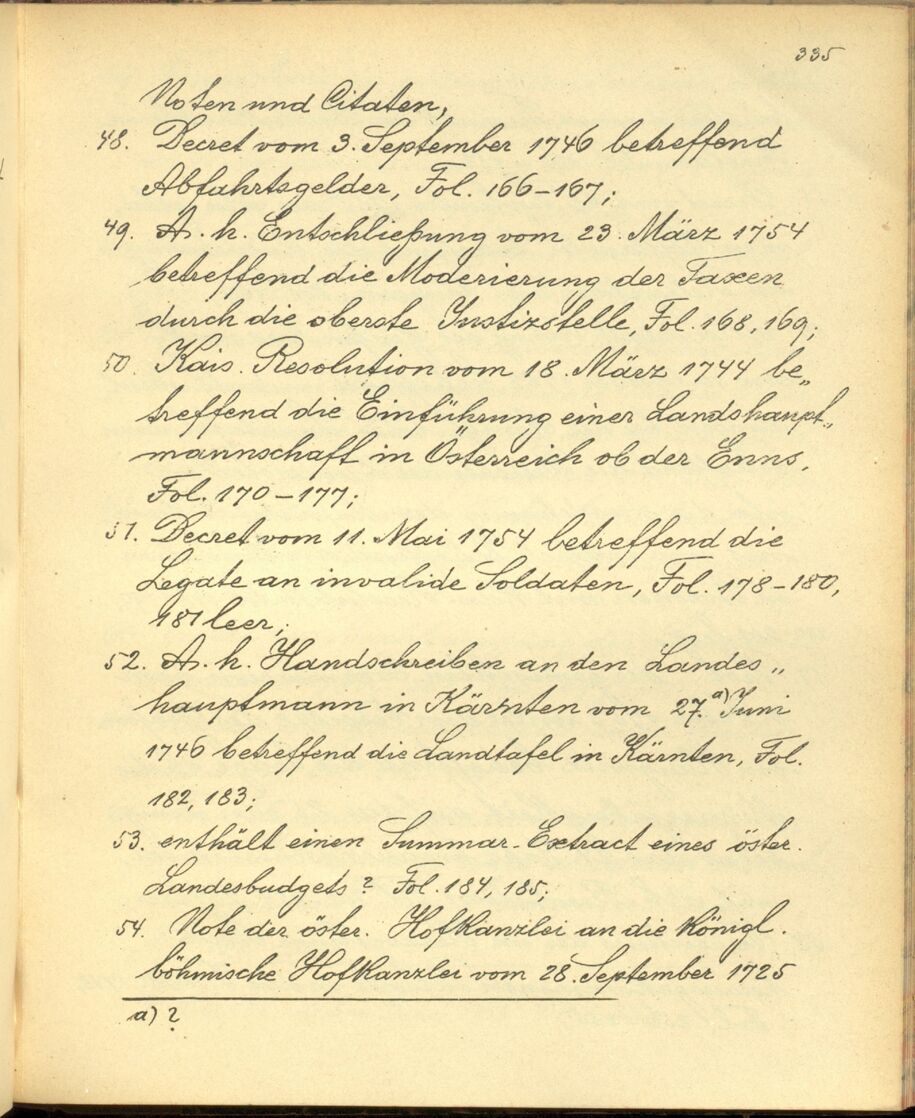 335
Noten und Citaten,
48. Decret vom 3. September 1746 betreffend
Abfahrtsgelder, Fol. 166-167;
49. A. h. Entschließung vom 23. März 1754
betreffend die Moderierung der Taxen
durch die oberste Justizstelle, Fol. 168, 169;
50. Kais. Resolution vom 18. März 1744 be„
treffend die Einführung einer Landshaupt„
mannschaft in Österreich ob der Enns,
Fol. 170-177;
51. Decret vom 11. Mai 1754 betreffend die
Legate an invalide Soldaten, Fol. 178-180,
181 leer;
52. A. h. Handschreiben an den Landes„
hauptmann in Kärnten vom 27. a) Juni
1746 betreffend die Landtafel in Kärnten, Fol.
182, 183;
53. enthält einen Summar-Extract eines öster.
Landesbudgets? Fol. 184, 185;
54. Note der öster. Hofkanzlei an die Königl.
böhmische Hofkanzlei vom 28. September 1725
a) ?